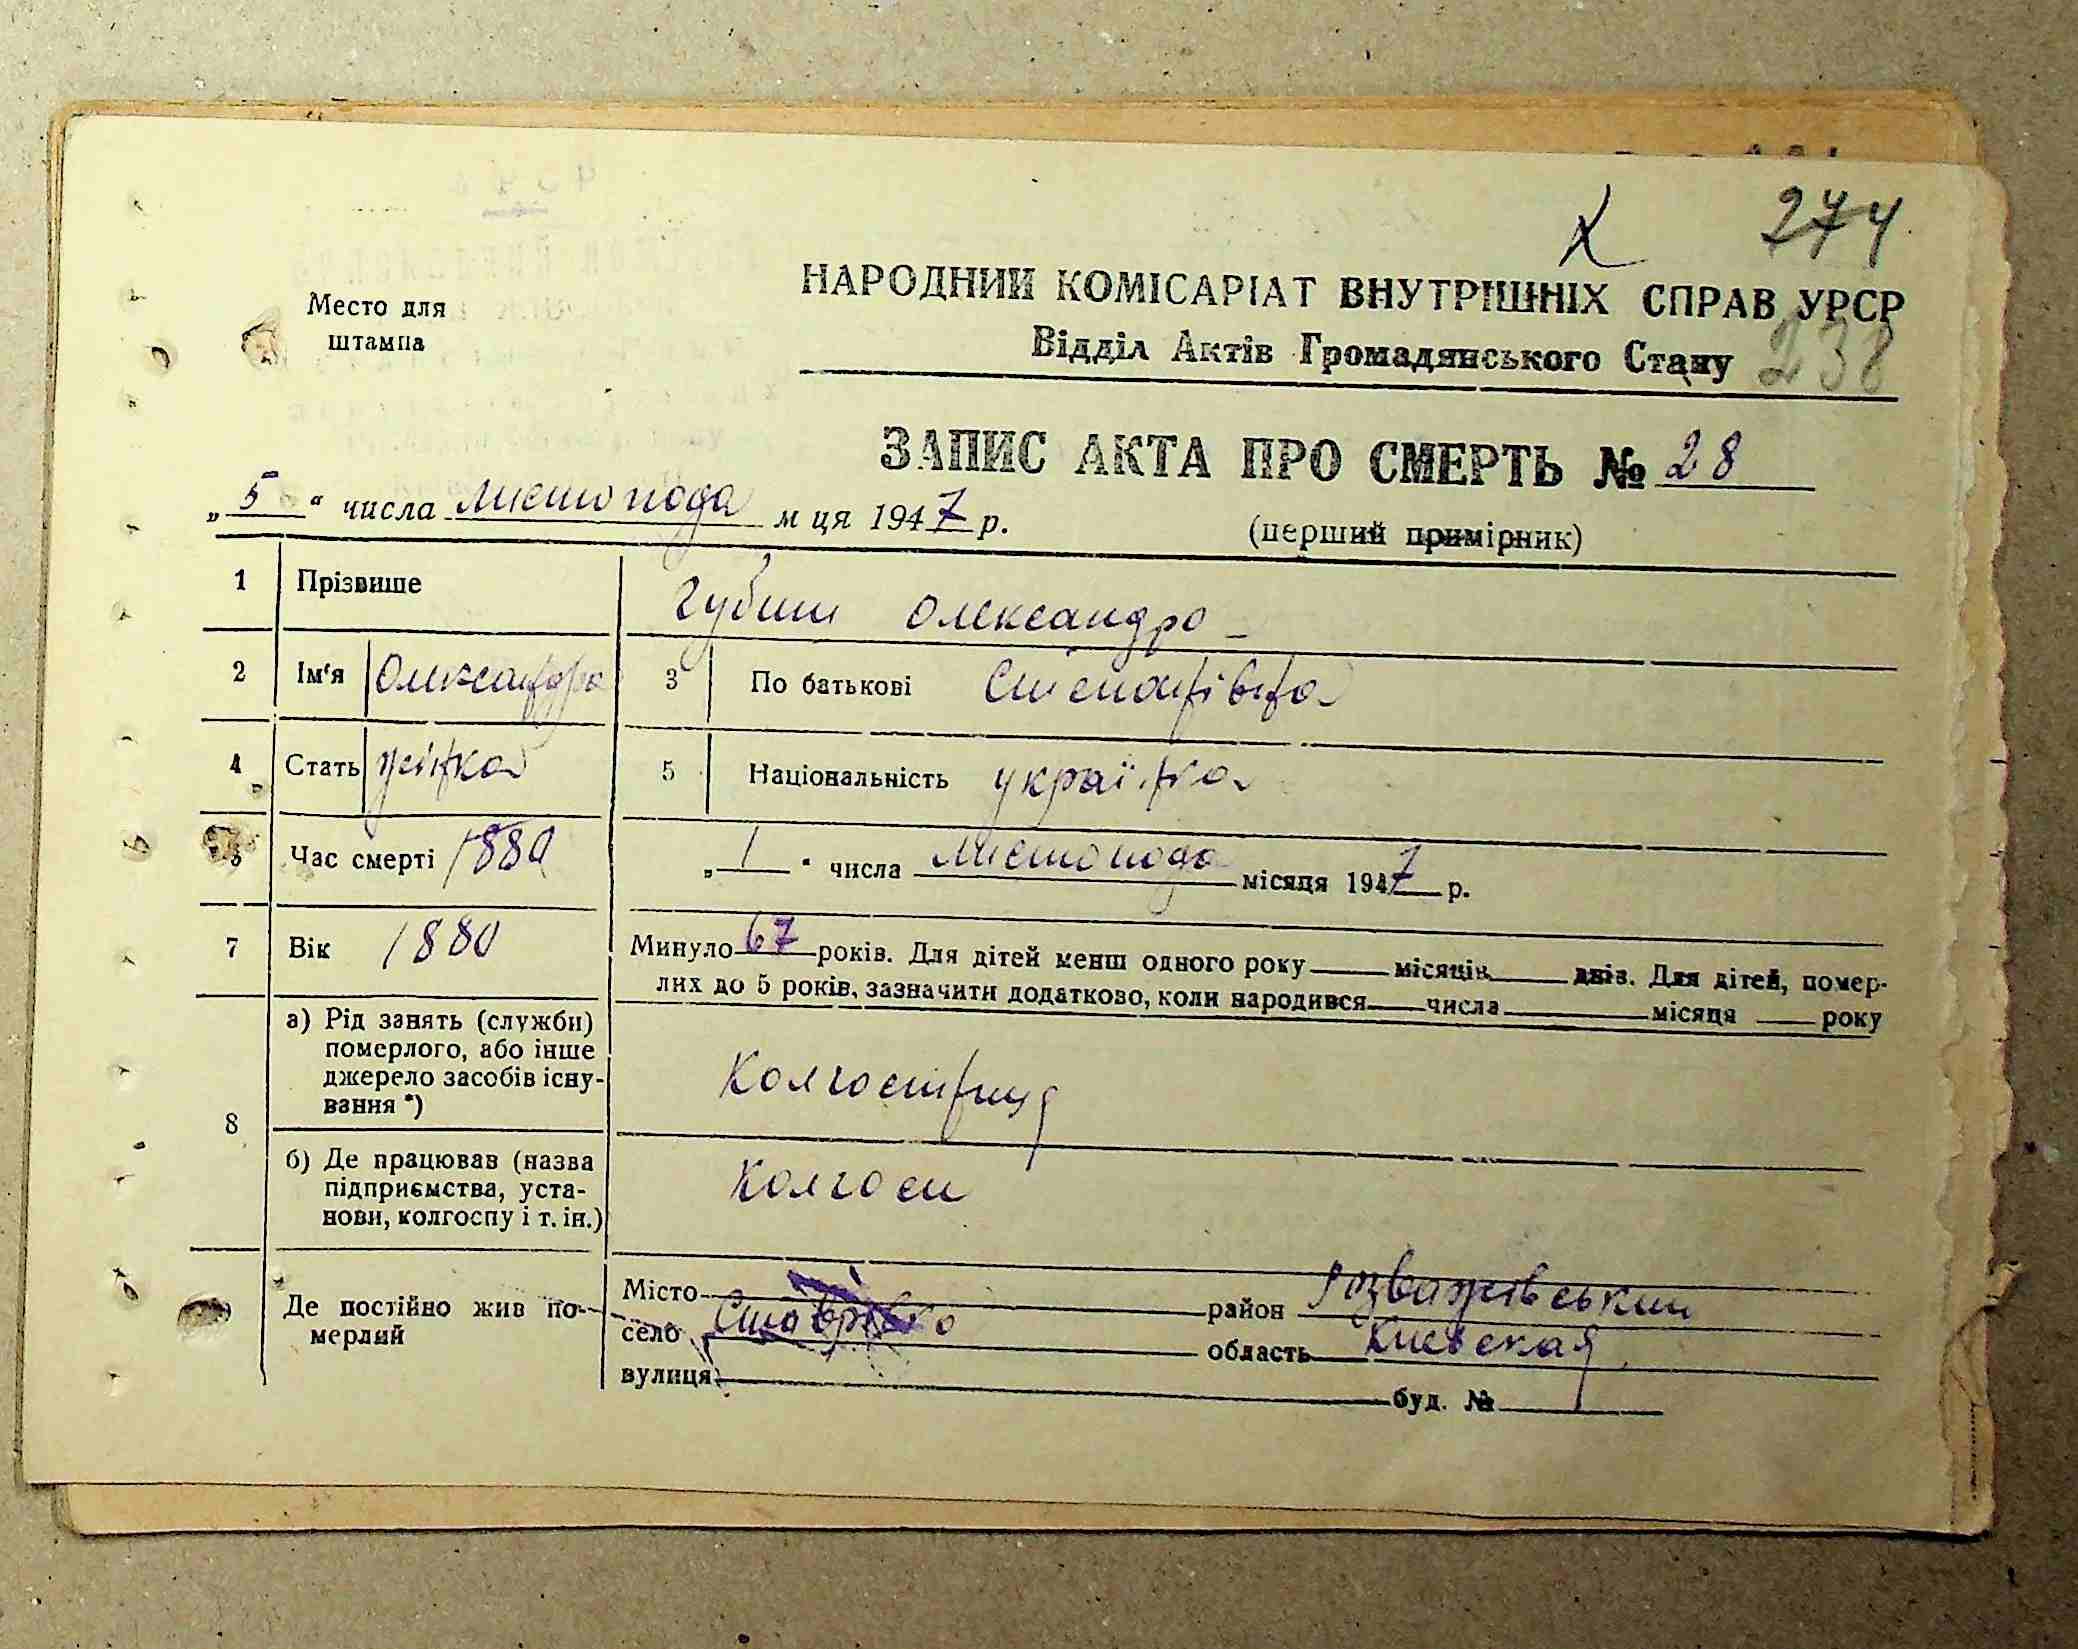 274
Место для
штампа
НАРОДНИЙ КОМІСАРІАТ ВНУТРІШНІХ СПРАВ УРСР
Відділ Актів Громадянського Стану 238
ЗАПИС АКТА ПРО СМЕРТЬ № 28
„5“ числа листопада м ця 1947 р. (перший примірник)
1 Прізвише Олександра
2 Ім'я Олександра 3 По батькові Степанівна
4 Стать жінка 5 Національність українка
Час смерті 1880 „1“ числа листопада місяця 1947 р.
7 Вік 1880 Минуло 67 років. Для дітей менш одного року місяців днів. Для дітей, помер-
лих до 5 років, зазначити додатково, коли народився числа місяця року
8 а) Рід занять (служби)
померлого, або інше
джерело засобів існу-
вання *)
Колгоспниця
б) Де працював (назва
підприємства, уста-
нови, колгоспу і т. ін.)
Колгосп
Де постійно жив по-
мерлий
Місто район Розважівський
село область Киевская
вулиця буд. №